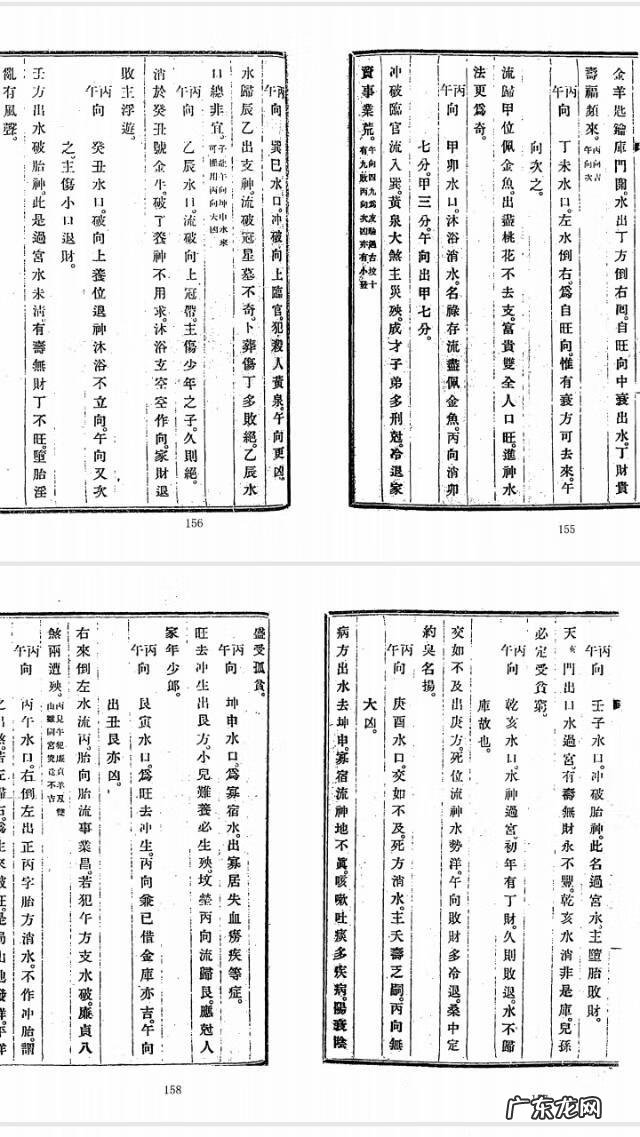 金羊匙鑰庫門開。水出丁方右倒囘。自旺向中衰出水。丁財貴
壽福頻來。丙向吉午向次
丙午向 丁未水口。左水倒右。爲自旺向。惟有衰方可去來。午
向次之。
流歸甲位佩金魚。出盡桃花不去支。富貴雙全人口旺。進神水
法更爲奇。
丙午向 甲卯水口。沐浴消水。名祿存流盡佩金魚。丙向消卯
七分。甲三分。午向出甲七分。
冲破臨官流入巽。黃泉大煞主災殃。成才子弟多刑尅。冷退家
資事業荒。
155
丙午向 巽巳水口。冲破向上臨官。犯殺人黃泉。午向更凶。
水歸辰乙出支神。流破冠星墓不奇。卜葬傷丁多敗絕。乙辰水
口總非宜。
丙午向 乙辰水口。流破向上冠帶。主傷少年之子。久則絕。
消於癸丑號金牛。破了養神不用求。沐浴支空空作向。家財退
敗主浮遊。
丙午向 癸丑水口。破向上養位退神沐浴不立向。午向又次
之。主傷小口退財。
壬方出水破胎神。此是過宮水未清有壽無財丁不旺。墮胎淫
亂有風聲。
156
丙午向 壬子水口。冲破胎神。此名過宮水。主墮胎敗財。
天門出口水過宮。有壽無財永不豐。乾亥水消非是庫。兒孫
必定受貧窮。
丙午向 乾亥水口。水神過宮。初年有丁財。久則敗退。水不歸
庫故也。
交如不及出庚方。死位流神水勢洋。午向敗財多冷退。桑中定
約臭名揚。
丙午向 庚酉水口。交如不及。死方消水。主夭壽乏嗣。丙向無
大凶。
病方出水去坤申。寡宿流神地不眞。咳嗽吐痰多疾病。陽衰陰
盛受孤貧。
丙午向 坤申水口。爲寡宿水。出寡居失血癆疾等症。
旺去冲生出艮方。小兒難養必生殃。坟塋丙向流歸艮。應尅人
家年少郎。
丙午向 艮寅水口。爲旺去冲生。丙向乘巳借金庫亦吉。午向
出丑艮亦凶。
右來倒左水流丙。胎向胎流事業昌。若犯午方支水破。廉貞八
煞兩遭殃。
丙午向 丙午水口。右倒左出正丙字胎方消水。不作冲胎。謂
158
广东龙网